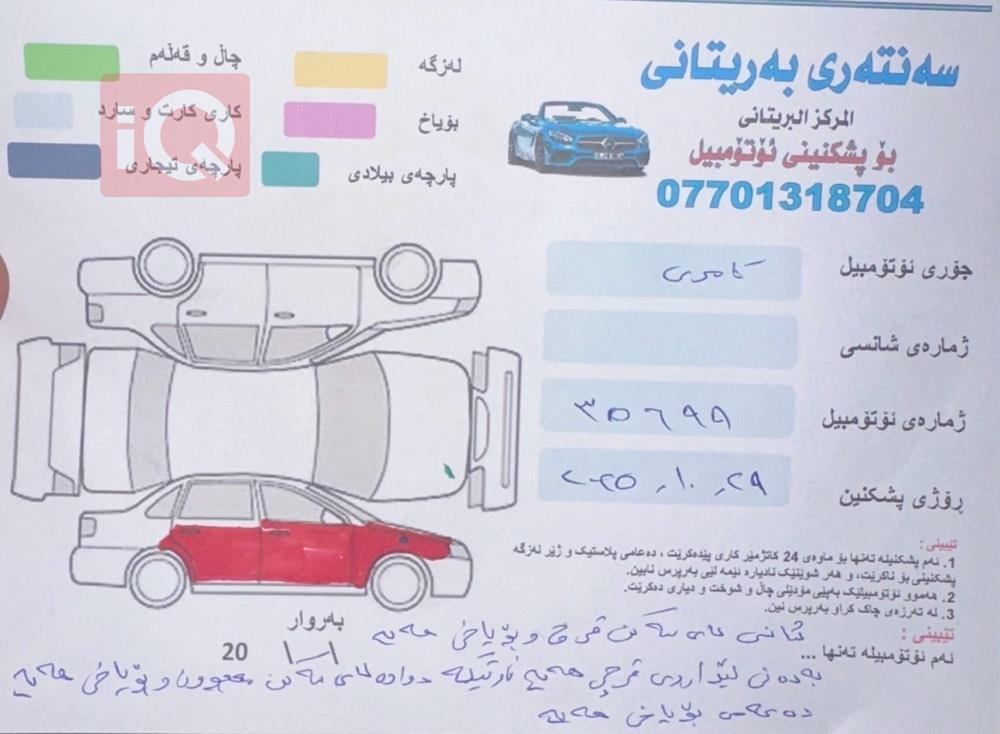 سەنتەری بەریتانی
المركز البريتانى
بۆ پشکنینی ئۆتۆمبیل
07701318704
چاڵ و قەڵەم
لەزگە
کاری کارت و سارد
بۆیاخ
پارچەی تیجاری
پارچەی بیلادی
iQ
جۆری ئۆتۆمبیل
کامری
ژمارەی شانسی
ژمارەی ئۆتۆمبیل
٣٥٦٩٩
رۆژی پشکنین
٢٠٢٥.١٠.٢٩
تێبینی :
1. ئەم پشکنینە تەنها بۆ ماوەی 24 کاتژمێر کاری پێدەکرێت ، دەعامی پلاستیک و ژێر لەزگە
پشکنینی بۆ ناکرێت، و هەر شوێنێک نادیارە ئێمە لێی بەرپرس نابین.
2. هەموو ئۆتۆمبیلێک بەپێی مۆدێلی چاڵ و شوخت و دیاری دەکرێت.
3. لە تەرزەی چاک کراو بەرپرس نین.
تێبینی :
ئەم ئۆتۆمبیلە تەنها ...
بەروار
20
و بۆیاخی هەیە
بۆیاخی هەیە